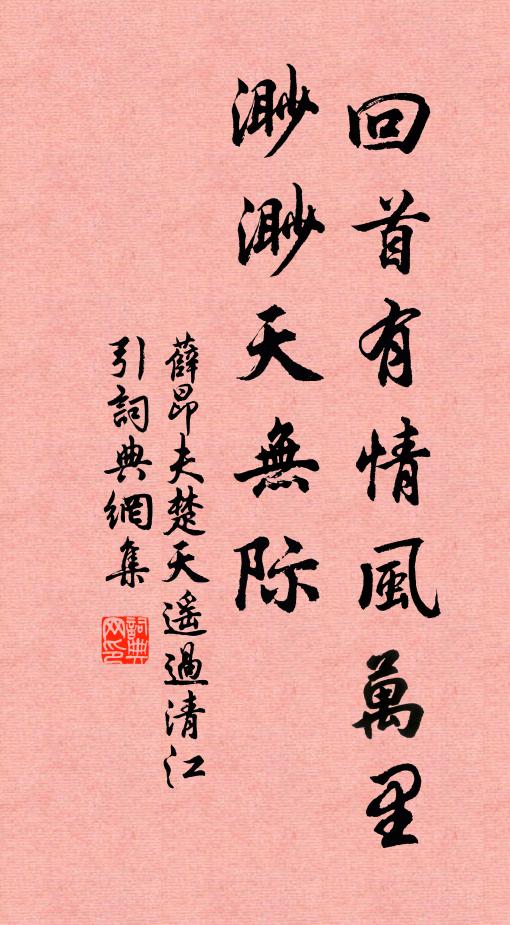 回首有情風萬里
渺渺天無际
薛昂夫楚天遥過清江
引詞典網集
詞典
网印